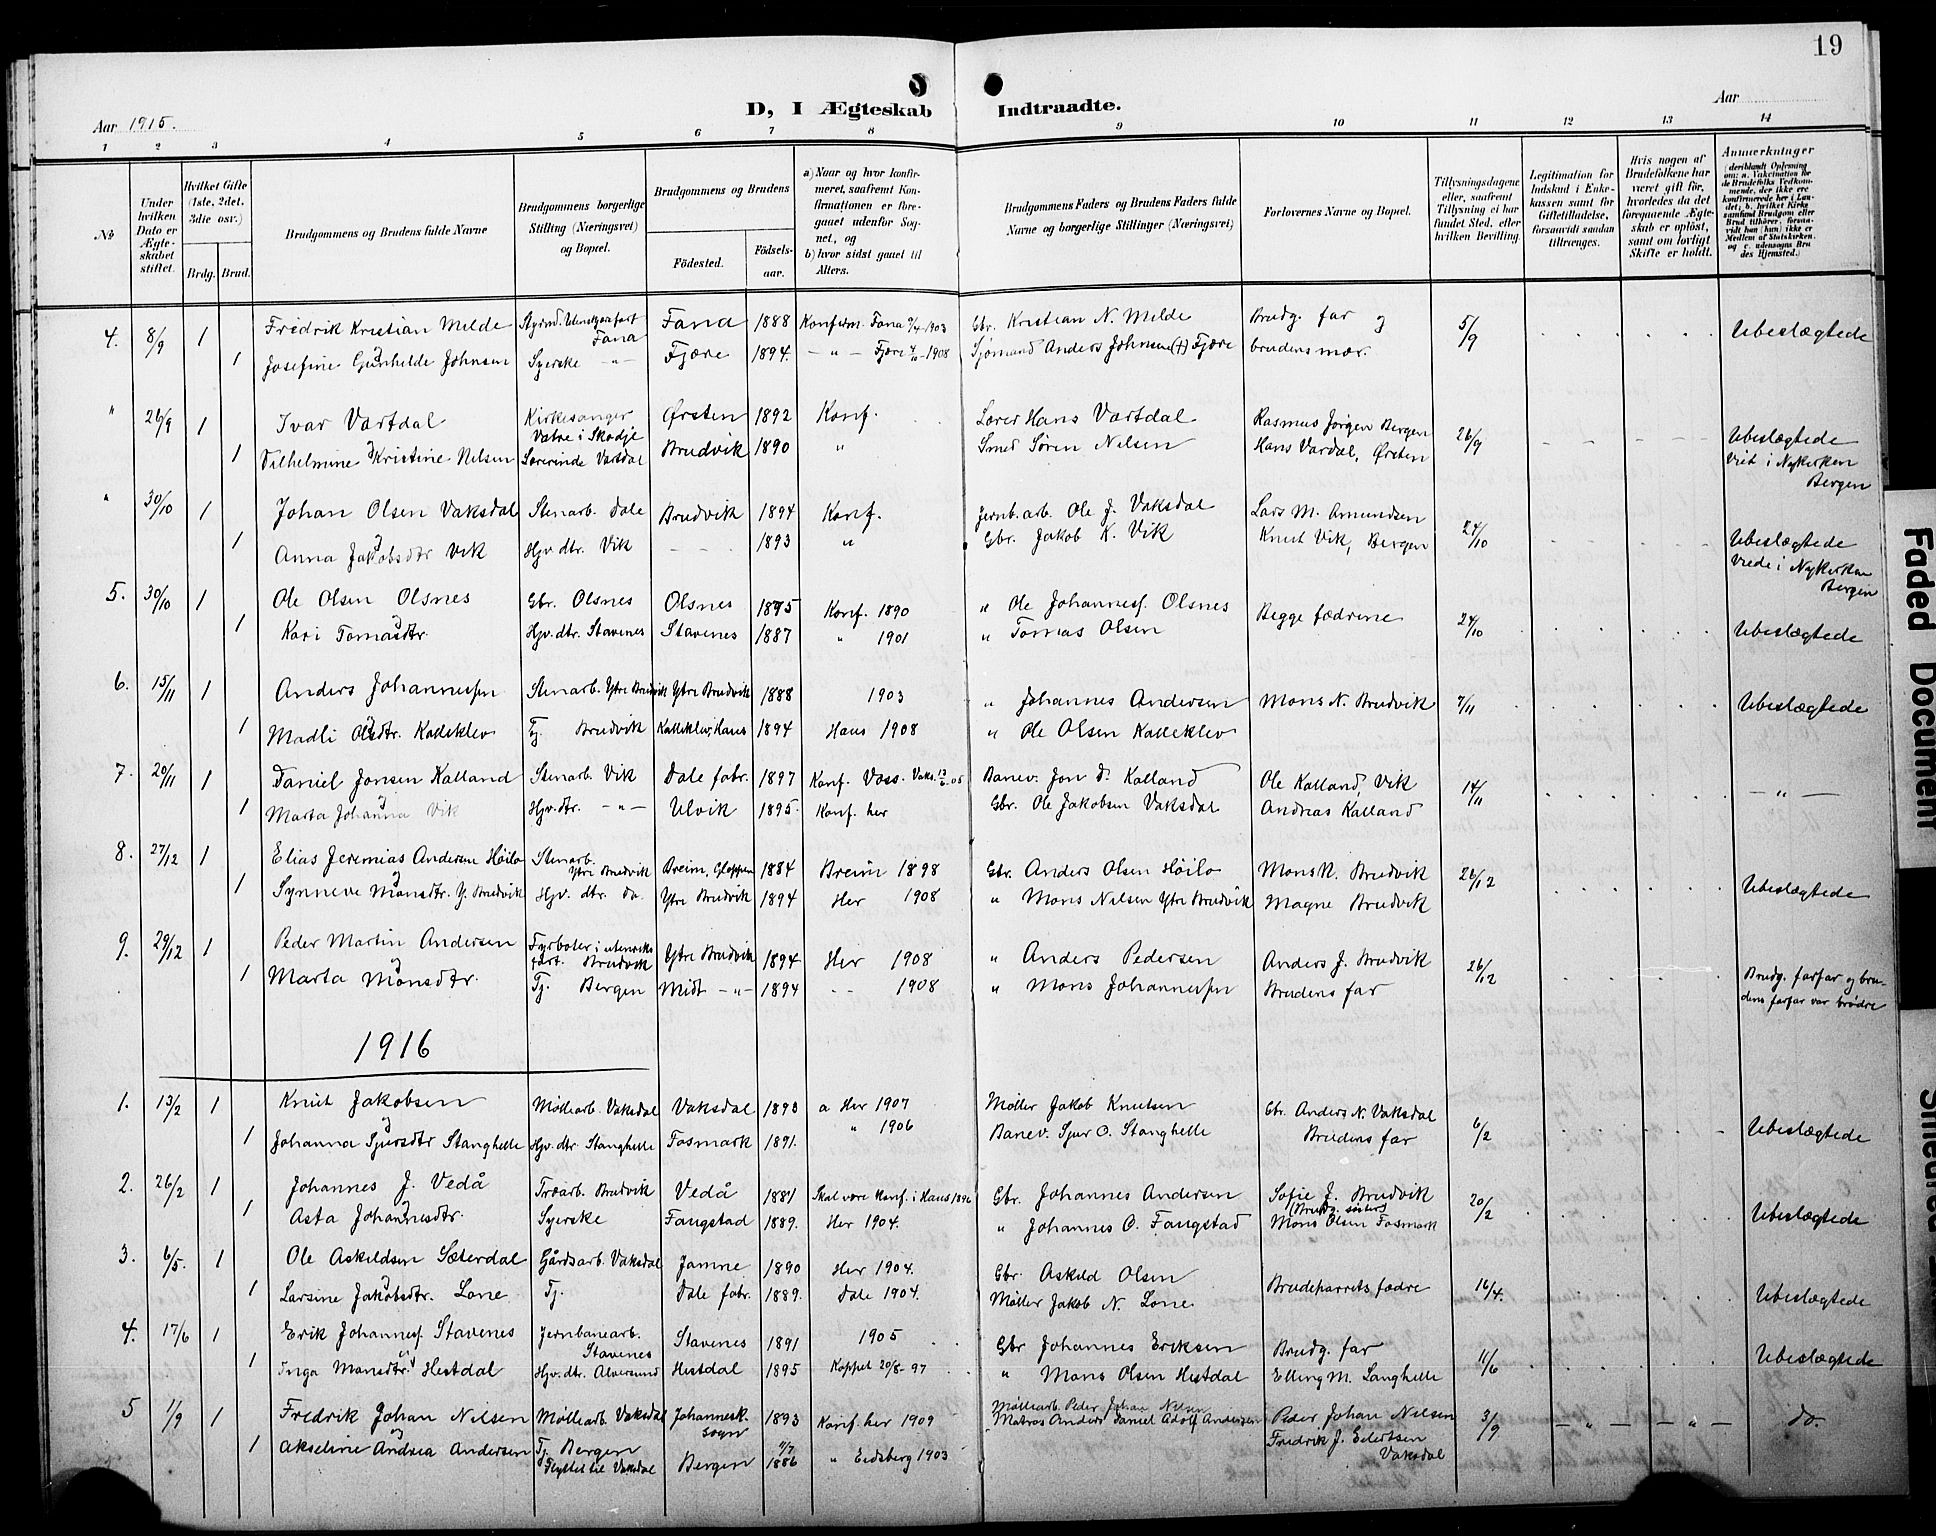 19
D, I Ægteskab Indtraadte.
Aar 1915.
Aar
1 2 3 4 5 6 7 8 9 10 11 12 13 14
No
Under hvilken Dato er Ægteskabet stiftet.
Hvilket Gifte (1ste, 2det, 3die osv.)
Brdg. Brud.
Brudgommens og Brudens fulde Navne
Brudgommens borgerlige Stilling (Næringsvei) og Bopæl.
Brudgommens og Brudens
Födested. Födselsaar.
a) Naar og hvor konfirmeret, saafremt Konfirmationen er foregaaet udenfor Sognet, og
b) hvor sidst gaaet til Alters.
Brudgommens Faders og Brudens Faders fulde Navne og borgerlige Stillinger (Næringsvei)
Forlovernes Navne og Bopæl.
Tillysningsdagene eller, saafremt Tillysning ei har fundet Sted, efter hvilken Bevilling.
Legitimation for Indskud i Enkekassen samt for Giftetilladelse, forsaavidt saadan tiltrænges.
Hvis nogen af Brudefolkene har været gift för, hvorledes da det foregaaende Ægteskab er oplöst, samt om lovligt Skifte er holdt.
Anmærkninger
4. 8/9 1 Fredrik Kristian Milde Styrmd. Udenrigsfart Fana Fana 1888 Konfirm. Fana 5/4 1903 Gbr. Kristian N. Milde Brudg. far og 5/9 Ubeslægtede
1 og Josefine Gunhilde Johnsen Syerske -"- Fjære 1894. -"- Fjære 4/10 1908 Sjømand Anders Johnsen (+) Fjære brudens mor.
" 26/9 1 Ivar Vartdal Kirkesanger Vatne i Skodje Ørsten 1892 Konf. Lærer Hans Vartdal Rasmus Jørgen Bergen 26/9 Ubeslægtede
1 og Vilhelmine Kristine Nilsen Lærerinde Vartdal Brudvik 1890 " Smed Søren Nilsen Hans Vardal, Ørsten Viet i Nykirken Bergen
" 30/10 1 Johan Olsen Vaksdal Stenarb. Dale Brudvik 1894 Konf. Jernb.arb. Ole J. Vaksdal Lars M. Amundsen 24/10 Ubeslægtede
1 og Anna Jakobsdtr Vik Hjv. dtr. Vik - - - 1893 " Gbr. Jakob K. Vik Knut Vik, Bergen Viede i Nykirken Bergen
5. 30/10 1 Ole Olsen Olsnes Gbr. Olsnes Olsnes 1875 Konf. 1890 " Ole Johannesf. Olsnes Begge fædrene 24/10
1 og Kari Tomasdtr. Hjv. dtr. Stavenes Stavenes 1887 " 1901 " Tomas Olsen Ubeslægtede
6. 15/11 1 Anders Johannesfn Stenarb. Ytre Brudvik Ytre Brudvik 1888 1903 " Johannes Andersen Mons N. Brudvik 7/11 Ubeslægtede
1 og Madli Olsdtr. Kalleklev Tj. Brudvik Kalleklev, Haus 1894 Haus 1908 " Ole Olsen Kalleklev
7. 20/11 1 Daniel Jonsen Kalland Stenarb. Vik Dale fabr. 1897 Konf. Voss. Banev. Jon D. Kalland Ole Kalland, Vik 14/11 -"-
1 og Marta Johanna Vik Hjv. dtr. -"- Ulvik 1895. Konf. her Gbr. Ole Jakobsen Vaksdal Andreas Kalland
8. 27/12 1 Elias Jeremias Andersen Høilo Stenarb. Ytre Brudvik Breim, Gloppen 1884 Breim 1898 Gbr. Anders Olsen Høilo Mons N. Brudvik 26/12
1 og Synneve Monsdtr. Y. Brudvik Hjv. dtr. do Ytre Brudvik 1894 Her 1908 " Mons Nilsen Ytre Brudvik Magne Brudvik Ubeslægtede
9. 29/12 1 Peder Martin Andersen Fyrbøter i utenriksfart. Brudvik Ytre Brudvik 1894 Her 1908 " Anders Pedersen Anders J. Brudvik 26/12
1 og Marta Monsdtr. Tj. Bergen Midt -"- 1894 -- 1908 " Mons Johannesfn Brudens far Brudg. farfar og brudens farfar var brødre
1916
1. 13/2 1 Knut Jakobsen Møllearb. Vaksdal Vaksdal 1893 a Her 1907 Møller Jakob Knutsen Gbr. Anders N. Vaksdal 6/2
1 og Johanna Sjursdtr Stanghelle Hjv. dtr Stanghelle Fosmark 1891. " 1906 Banev. Sjur O. Stanghelle Brudens far Ubeslægtede
2. 26/2 1 Johannes J. Vedå Træarb. Brudvik Vedå 1881 Skal være konf. i Haus 1896 Gbr. Johannes Andersen Sofie J. Brudvik (Brudg. søster) 20/2
1 og Asta Johannesdtr. Syerske Fangstad 1889. Her 1904. " Johannes O. Fangstad Mons Olsen Fosmark Ubeslægtede
3. 6/5. 1 Ole Askildsen Sæterdal Gårdsarb. Vaksdal Jamne 1890 Her 1904. Gbr. Askild Olsen Brudeparrets fædre 16/4.
1 og Larsine Jakobsdtr. Lone Tj. Dale fabr. 1889. Dale 1904. Møller Jakob N. Lone Ubeslægtede
4. 17/6 1 Erik Johannesf. Stavenes Jernbanearb. Stavenes Stavenes 1891 1905 Gbr Johannes Eriksen Brudg. far 11/6
1 og Inga Monsdtr. Hestdal Hjv. dtr. Alversund Hestdal 1895 Koppet 20/8-97 " Mons Olsen Hestdal Elling M. Langhelle Ubeslægtede
5 1/9 1 Fredrik Johan Nilsen Møllearb. Vaksdal Johannesk. sogn 1893 Konf. her 1909 Møllearb. Peder Johan Nilsen Peder Johan Nilsen 3/9 - " - - " - do.
1 og Akseline Andrea Andersen Tj. Bergen Flyttet til Vaksdal Bergen 9/7 1886 " Eidsberg 1903 Matros Anders Daniel Adolf Andersen Fredrik J. Eilertsen Vaksdal
Faded Document